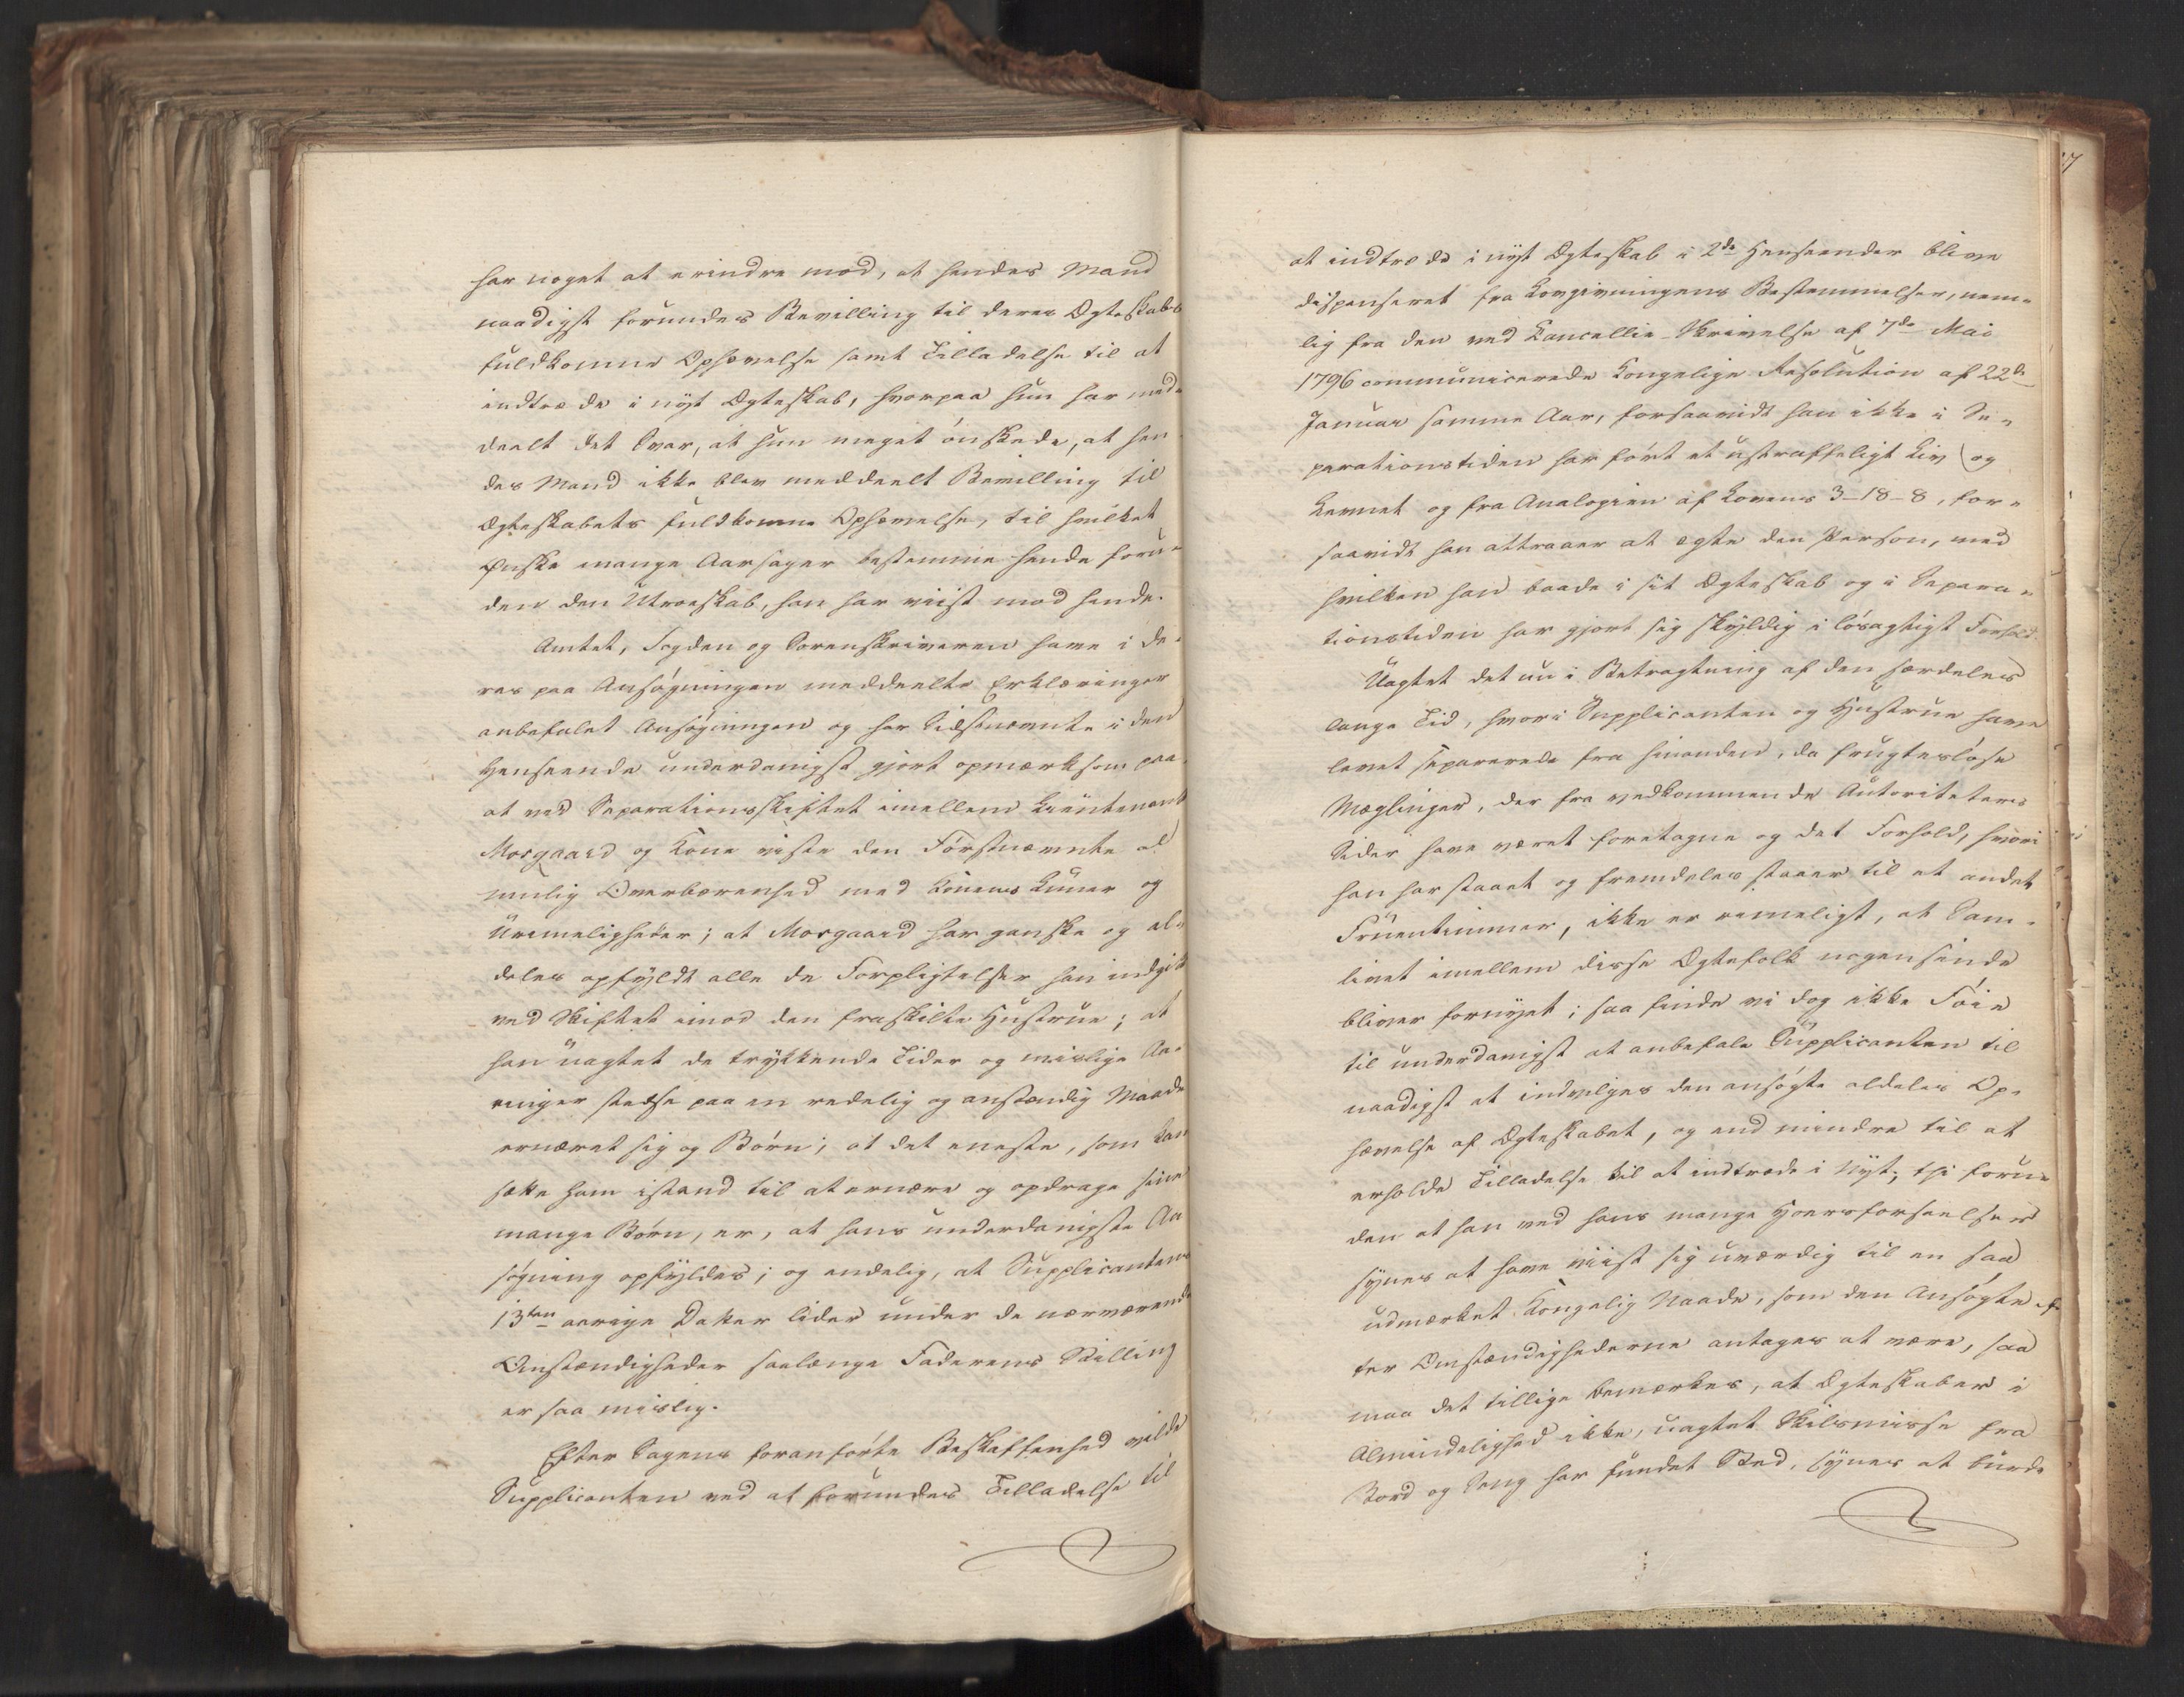 har noget at erindre mod, at hendes Mand
naadigst forundes Bevilling til deres Ægteskabs
fuldkomne Ophævelse samt Tilladelse til at
indtræde i nÿt Ægteskab, hvorpaa hun har med-
deelt det Svar, at hun meget ønskede, at hen-
des Mand ikke blev meddeelt Bevilling til
Ægteskabets fuldkomne Ophævelse, til hvilket
Ønske mange Aarsager bestemme hende foru-
den den Utroeskab, han har viist mod hende.
Amtet, Fogden og Sorenskriveren have i de-
res paa Ansøgningen meddeelte Erklæringer
anbefalet Ansøgningen og har Sidstnævnte i den
Henseende underdanigst gjort opmærksom paa,
at ved Separationsskiftet imellem Lieutenant
Morgaard og Kone viste den Førstnævnte al
mulig Overbærenhed med Konens Luner og
Urimeligheder; at Morgaard har ganske og al-
deles opfÿldt alle de Forpligtelser han indgik
ved Skiftet imod den fraskilte Hustrue; at
han uagtet de trÿkkende Tider og mislige Aa-
ringer stedse paa en redelig og anstændig Maade
ernæret sig og Børn; at det eneste, som kan
sætte ham istand til at ernære og opdrage sine
mange Børn, er, at hans underdanigste An
søgning opfÿldes; og endelig, at Supplicantens
13ten aarige Datter lider under de nærværende
Omstændigheder saalænge Faderens Stilling
er saa mislig.
Efter Sagens foranførte Beskaffenhed vilde
Supplicanten ved at forundes Tilladelse til
at indtræde i nÿt Ægteskab i 2de Henseender blive
dispenseret fra Lovgivningens Bestemmelser, nem-
lig fra den ved Cancellie-Skrivelse af 7de Mai
1796 communicerede Kongelige Resolution af 22de
Januar samme Aar, forsaavidt han ikke i Se-
parationstiden har ført et ustraffeligt Liv og
Levnet og fra Analogien af Lovens 3-18-8, for-
saavidt han attraaer at ægte den Person, med
hvilken han baade i sit Ægteskab og i Separa-
tionstiden har gjort sig skÿldig i løsagtigt Forhold.
Uagtet det nu i Betragtning af den særdeles
lange Tid, hvori Supplicanten og Hustrue have
levet separerede fra hinanden, de frugtesløse
Mæglinger, der fra vedkommende Autoriteters
Sider have været foretagne og det Forhold, hvori
han har staaet og fremdeles staaer til et andet
Fruentimmer, ikke er rimeligt, at Sam-
livet imellem disse Ægtefolk nogensinde
bliver fornÿet; saa finde vi dog ikke Føie
til underdanigst at anbefale Supplicanten til
naadigst at indvilges den ansøgte aldeles Op-
hævelse af Ægteskabet, og end mindre til at
erholde Tilladelse til at indtræde i Nÿt; thi foru-
den at han ved hans mange Hoersforseelser
sÿnes at have viist sig uværdig til en saa
udmærket Kongelig Naade, som den Ansøgte ef-
ter Omstændighederne antages at være, saa
maa det tillige bemærkes, at Ægteskaber i
Almindelighed ikke, uagtet Skilsmisse fra
Bord og Seng har fundet Sted, sÿnes at burde